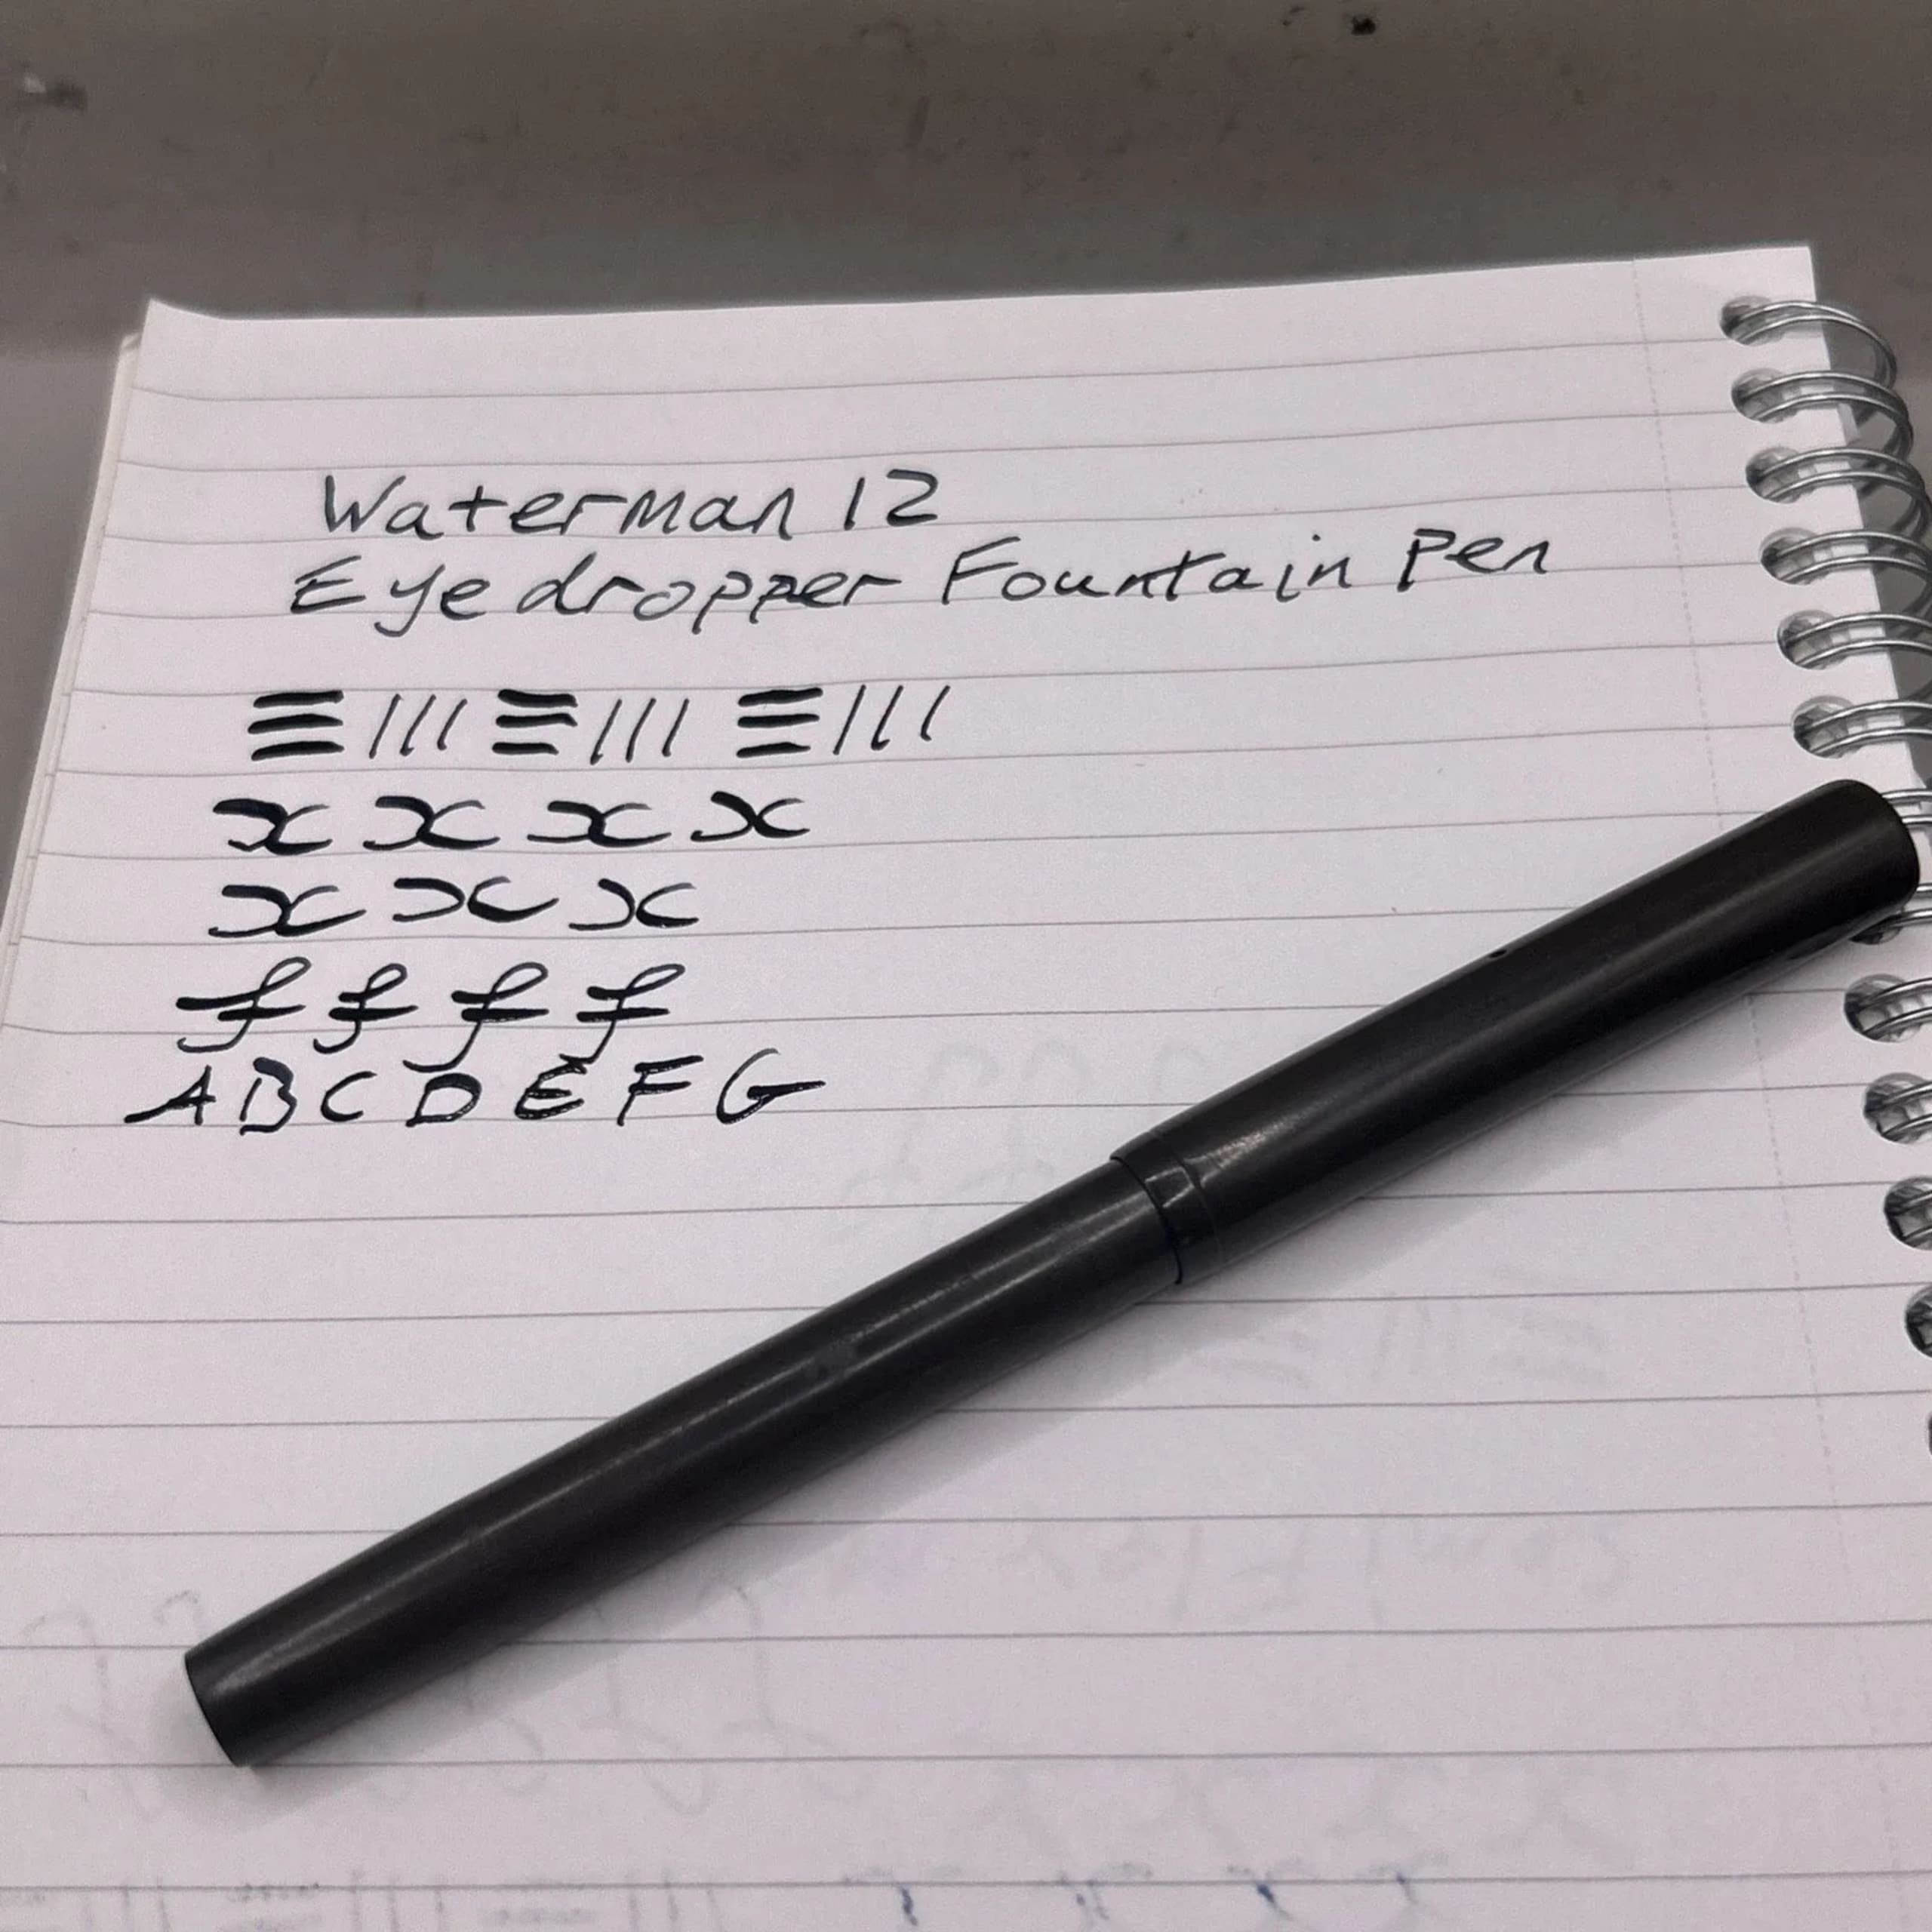 Waterman 12
Eyedropper Fountain Pen
≡ /// ≡ /// ≡ ///
x x x x
x x x
f f f f
A B C D E F G